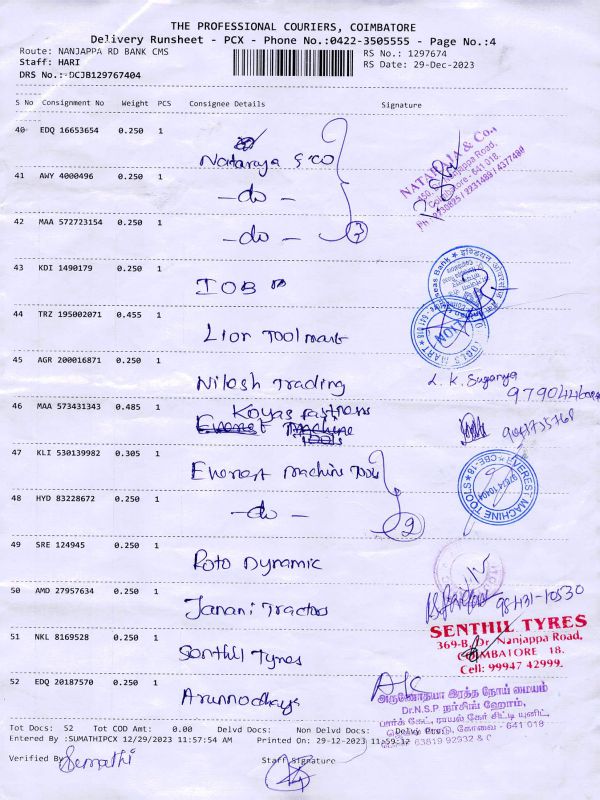 THE PROFESSIONAL COURIERS, COIMBATORE
Delivery Runsheet - PCX - Phone No.:0422-3505555 - Page No.:4
Route: NANJAPPA RD BANK CMS
RS No.: 1297674
Staff: HARI
RS Date: 29-Dec-2023
DRS No.:-DCJB129767404
S No Consignment No Weight PCS Consignee Details Signature
40 EDQ 16653654 0.250 1
Nataraja & co
NATARAJA & Co.,
Nanjappa Road,
Coimbatore - 641 018.
41 AWY 4000496 0.250 1
-do-
42 MAA 572723154 0.250 1
-do-
3
43 KDI 1490179 0.250 1
IOB
44 TRZ 195002071 0.455 1
Lion Toolmart
LION
45 AGR 200016871 0.250 1
Nilesh Trading
L. K. Suganya
46 MAA 573431343 0.485 1
Koyas
Everest Machine
Tools
47 KLI 530139982 0.305 1
Everest Machine Tools
EVEREST MACHINE TOOLS ★ CBE-18 ★
97874 10404
48 HYD 83228672 0.250 1
-do-
2
49 SRE 124945 0.250 1
Roto Dynamic
50 AMD 27957634 0.250 1
Janani Tractors
98431-10530
51 NKL 8169528 0.250 1
Senthil Tyres
SENTHIL TYRES
369-B, Dr. Nanjappa Road,
COIMBATORE 18.
Cell: 99947 42999.
52 EDQ 20187570 0.250 1
Arunnodhaya
அருணோதயா இரத்த நோய் மையம்
Dr.N.S.P நர்சிங் ஹோம்,
பார்க் கேட், ராயல் கேர் சிட்டி யுனிட்,
கோவை - 641 018
Tot Docs: 52 Tot COD Amt: 0.00 Delvd Docs: Non Delvd Docs: Delvy Prec:
Entered By :SUMATHIPCX 12/29/2023 11:57:54 AM Printed On: 29-12-2023 11:59:12
Verified By
Sumathi
Staff Signature